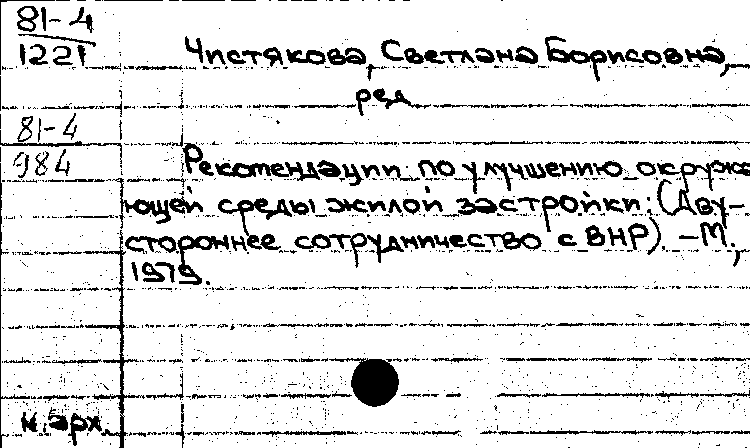 81-4
1221
Чистякова, Светлана Борисовна,
ред
81-4
984
Рекомендации по улучшению окружа
ющей среды жилой застройки: (Дву-
стороннее сотрудничество с ВНР). - М.,
1979.
н. арх.